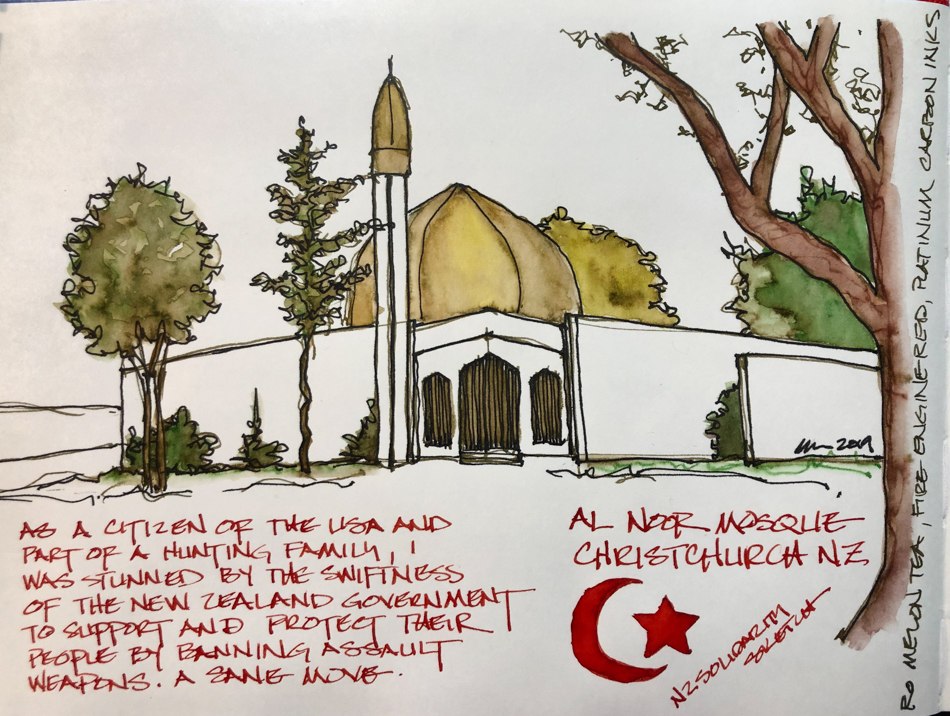 AS A CITIZEN OF THE USA AND
PART OF A HUNTING FAMILY, I
WAS STUNNED BY THE SWIFTNESS
OF THE NEW ZEALAND GOVERNMENT
TO SUPPORT AND PROTECT THEIR
PEOPLE BY BANNING ASSAULT
WEAPONS. A SANE MOVE.
AL NOOR MOSQUE
CHRISTCHURCH NZ
NZ.SOLIDARITY
SKETCH
2019
RO MELON TEA, FIRE ENGINE RED, PLATINUM CARBON INKS